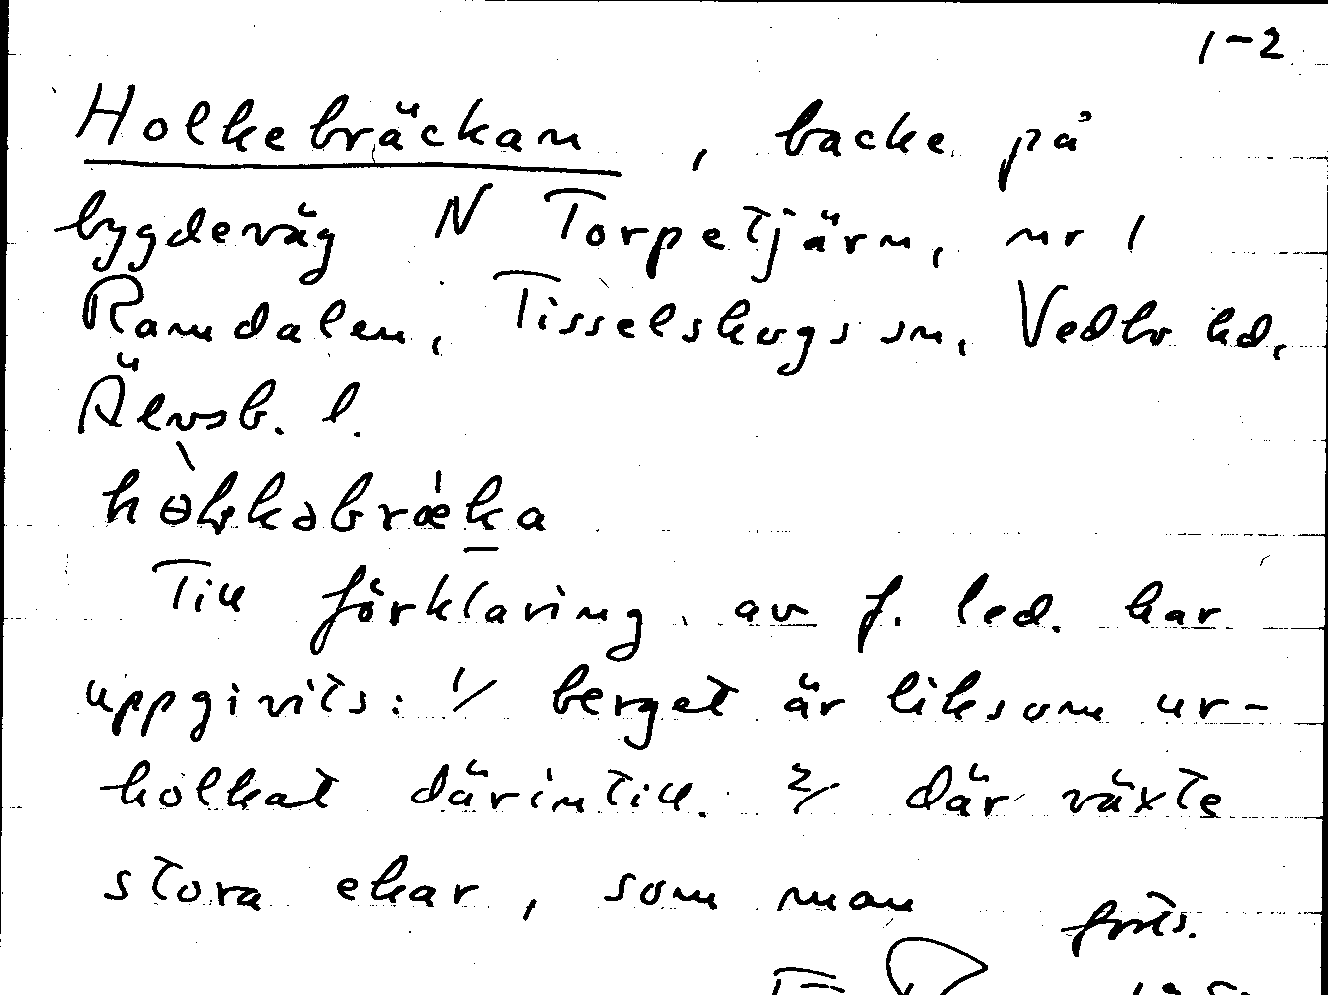 1-2
Holkebräckan, backe på
bygdeväg N Torpetjärn, nr 1
Ramdalen, Tisselskogs sn, Vedbo hd,
Älvsb. l.
Till förklaring av f. led. har
uppgivits: 1/ berget är liksom ur-
holkat därintill. 2/ där växte
stora ekar, som man
forts.